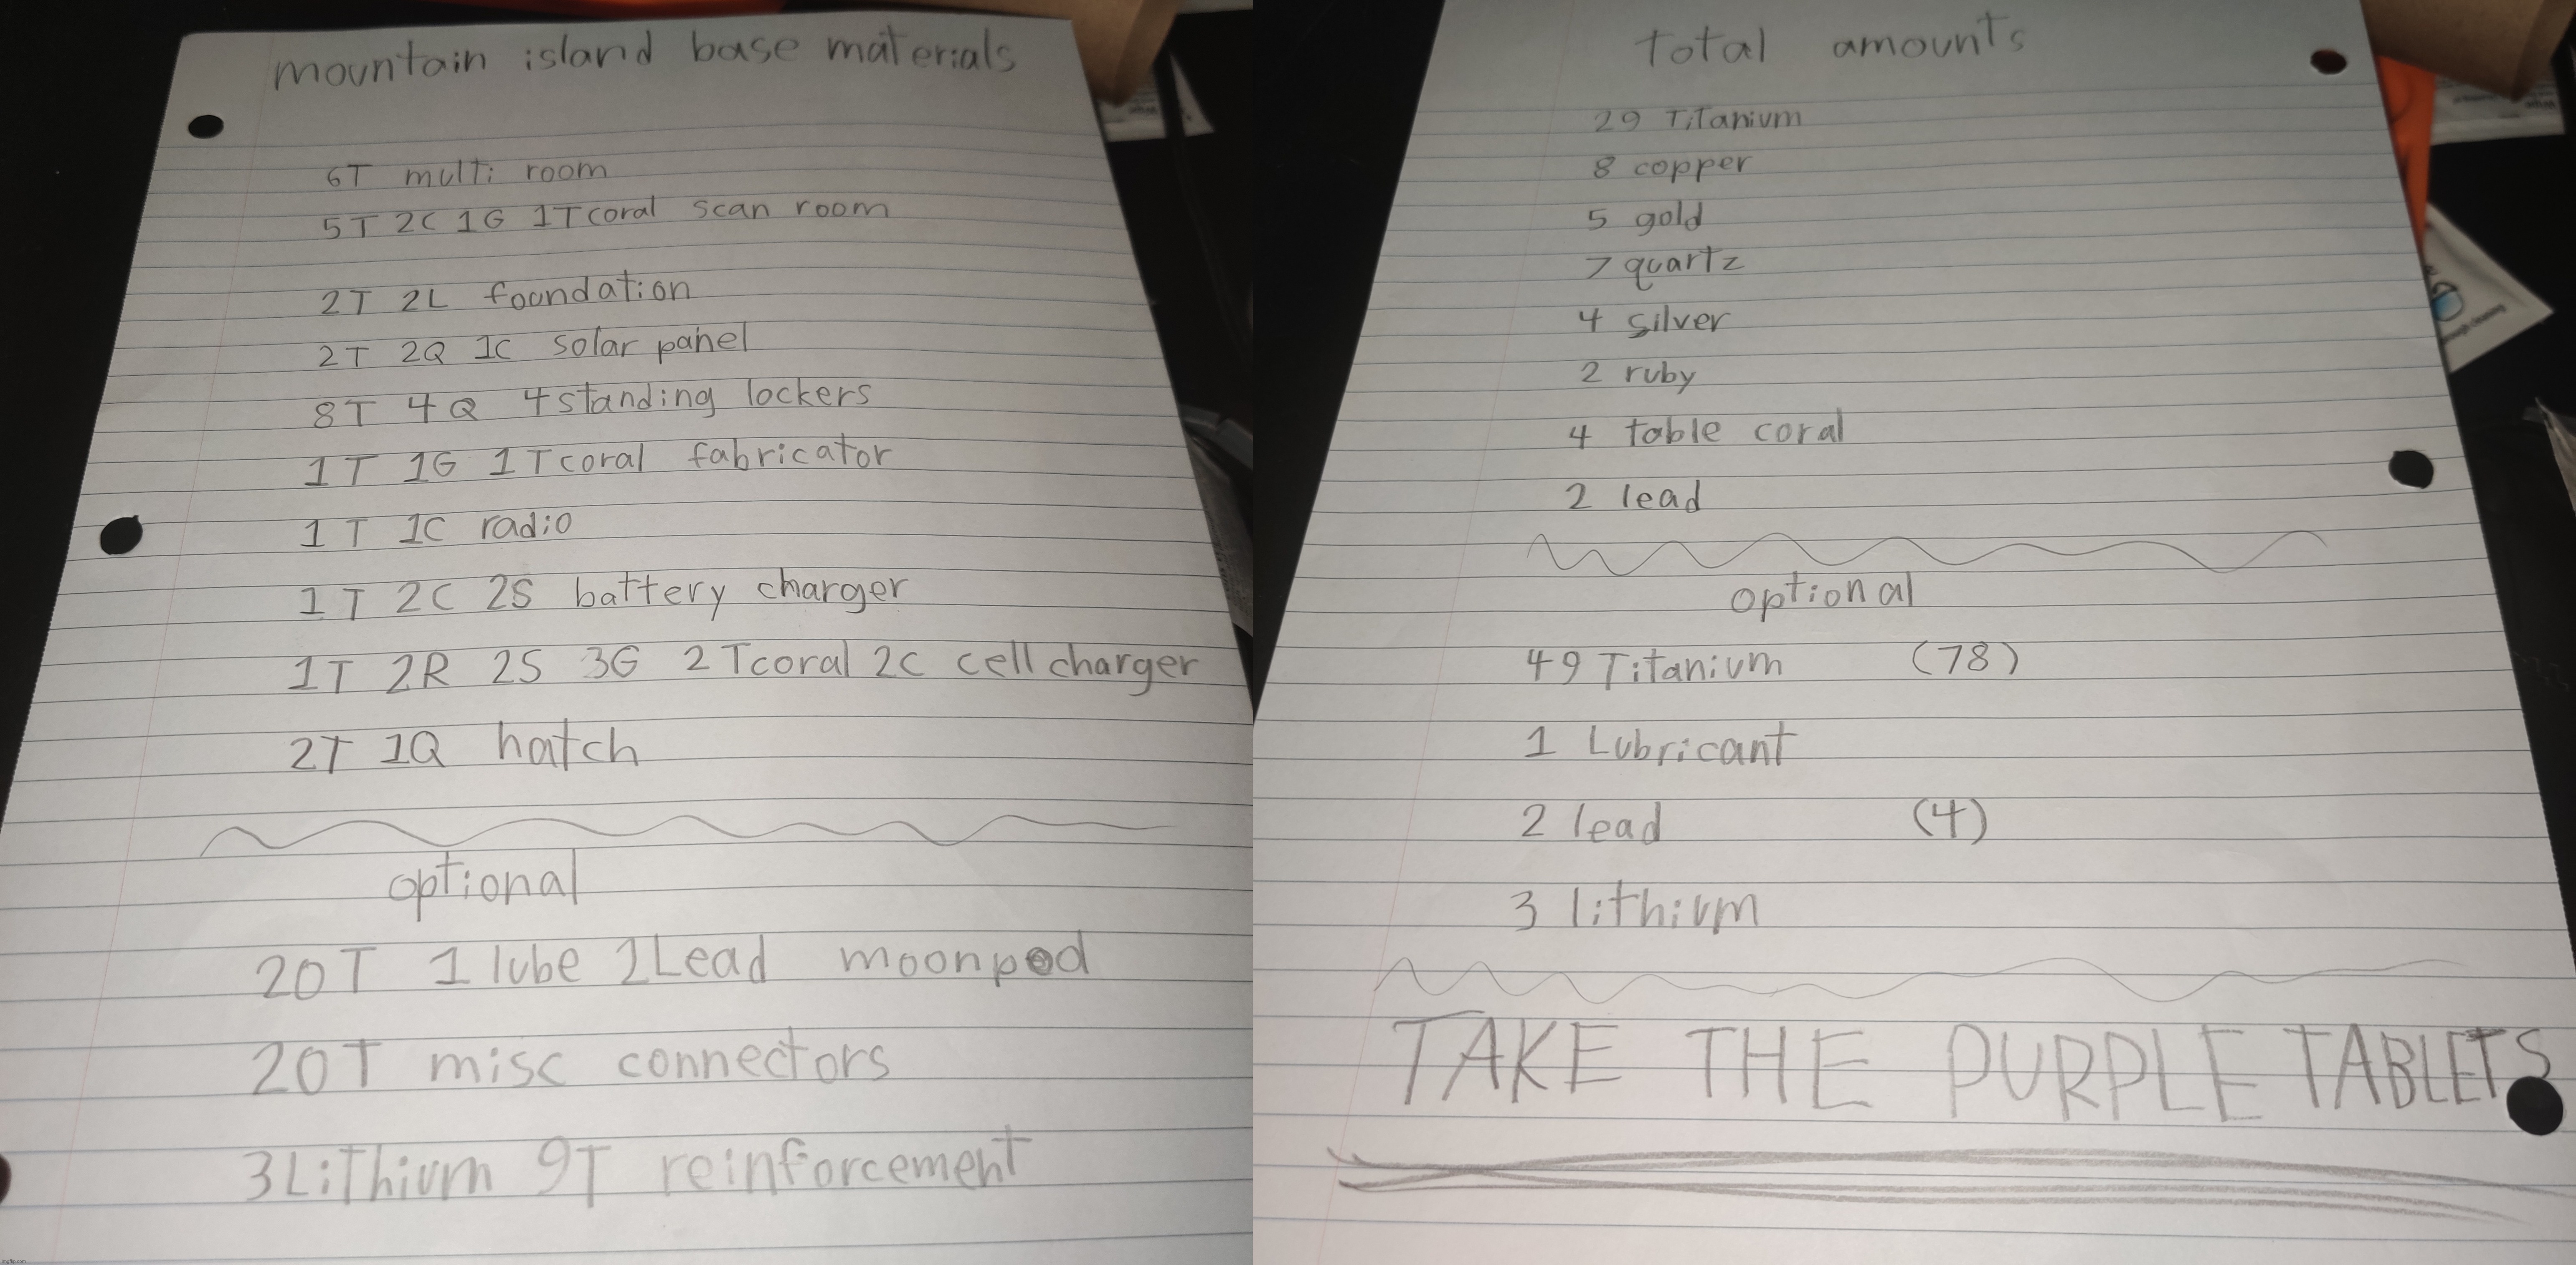 mountain island base materials
6T multi room
5T 2C 1G 1Tcoral scan room
2T 2L foundation
2T 2Q 1C solar panel
8T 4Q 4standing lockers
1T 1G 1Tcoral fabricator
1T 1C radio
1T 2C 2S battery charger
1T 2R 2S 3G 2Tcoral 2C cell charger
2T 1Q hatch
optional
20T 1 lube 2Lead moonpod
20T misc connectors
3Lithium 9T reinforcement
total amounts
29 Titanium
8 copper
5 gold
7 quartz
4 silver
2 ruby
4 table coral
2 lead
optional
49 Titanium (78)
1 Lubricant
2 lead (4)
3 lithium
TAKE THE PURPLE TABLETS